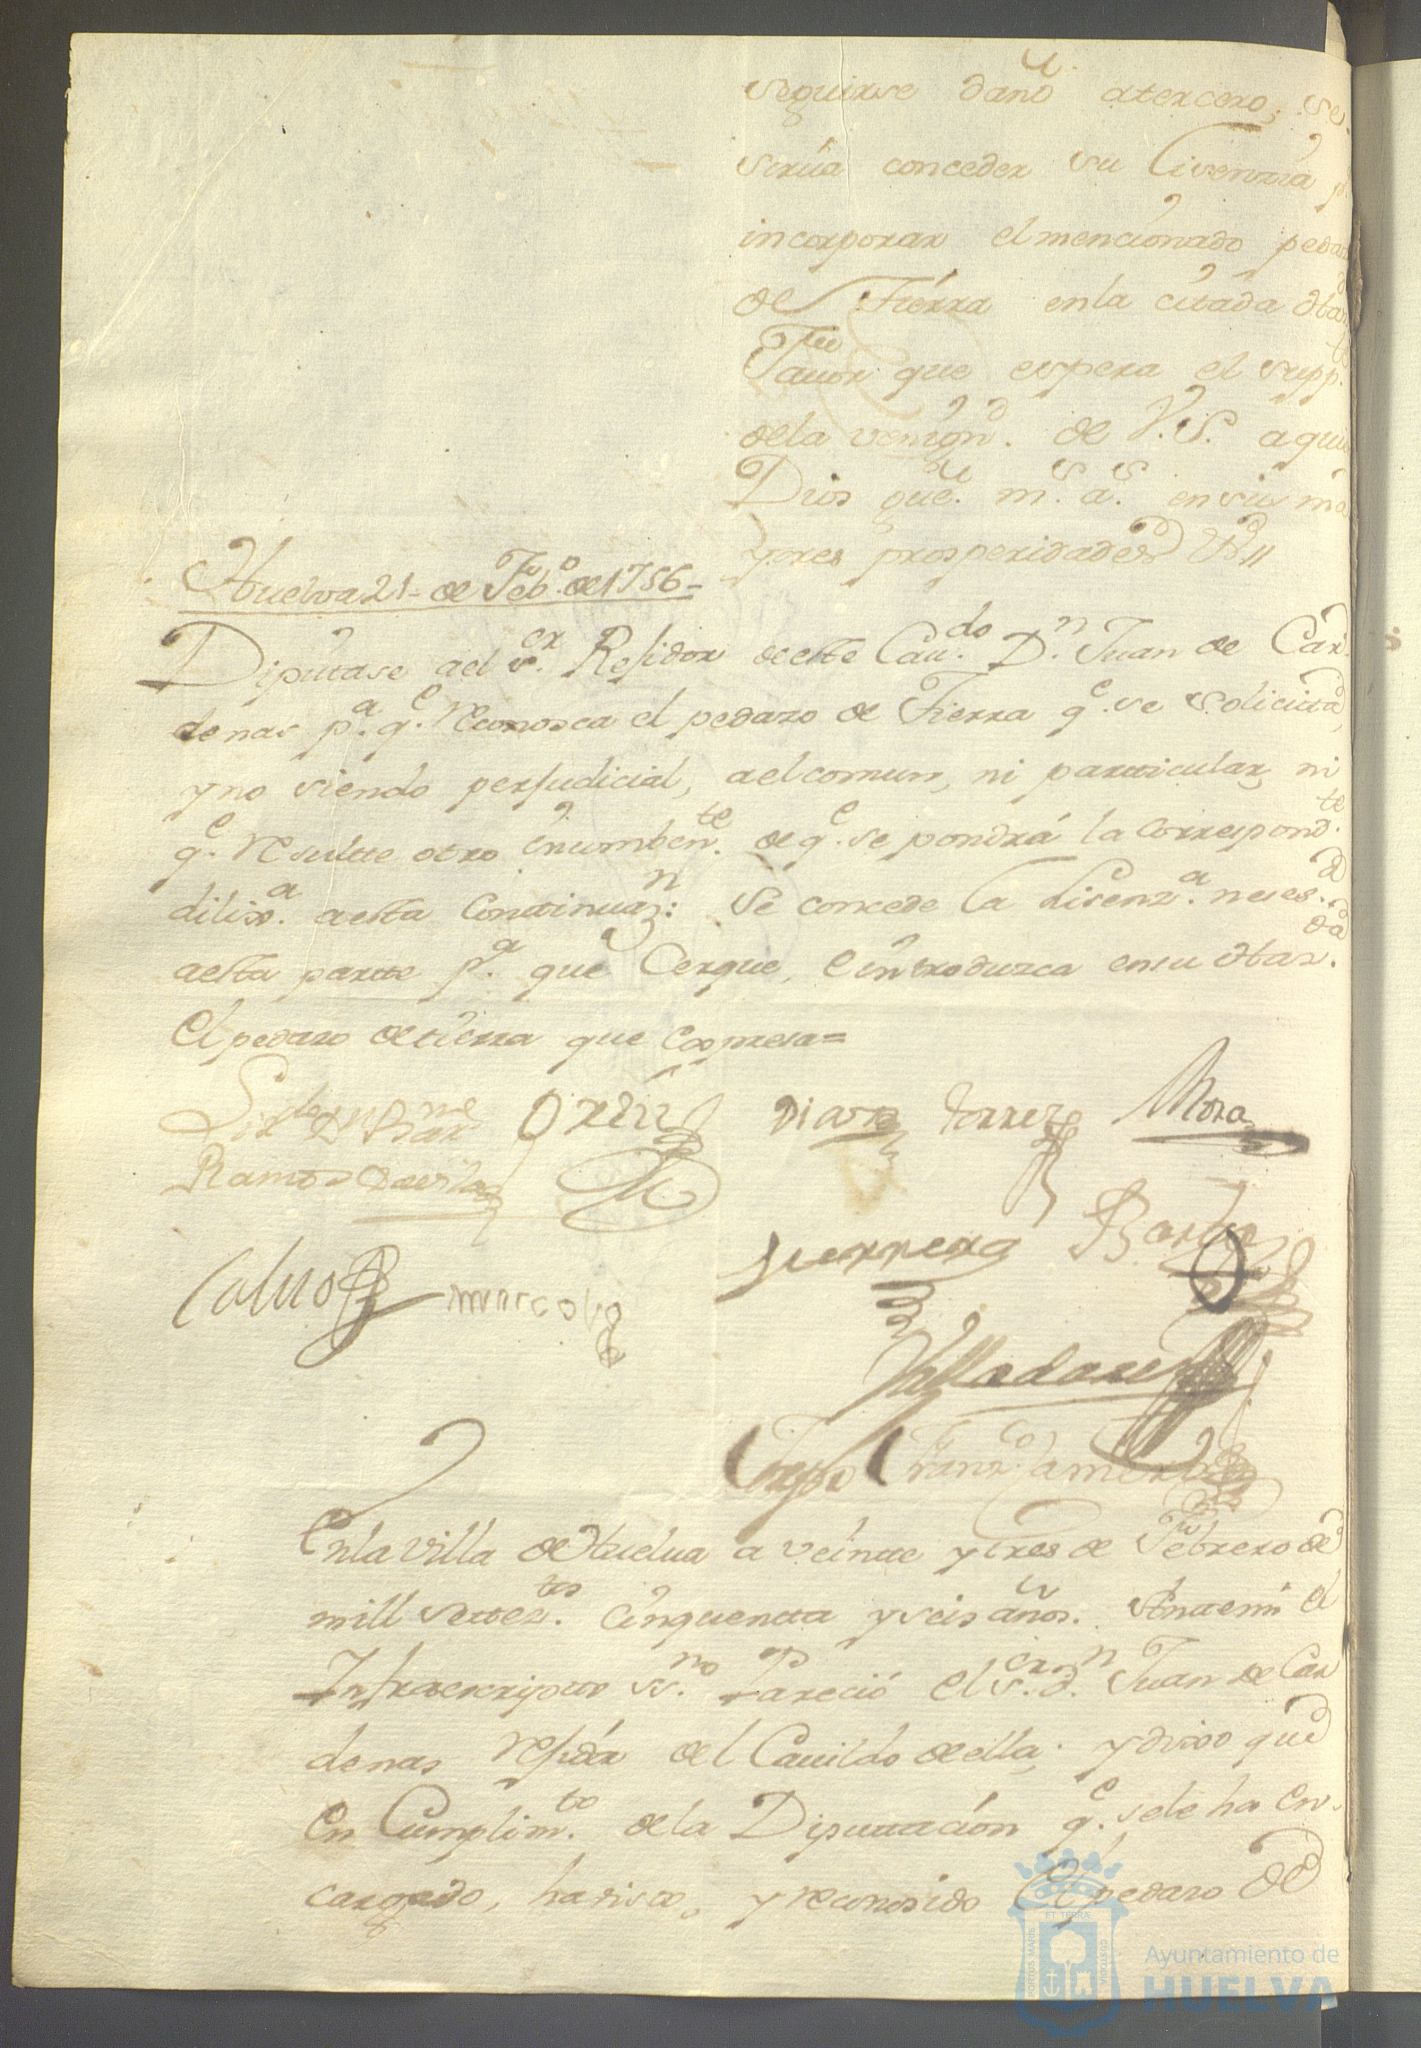 seguirse daño atercero, se
sirua conceder su Lisenzia p
incorporar elmencionado pedaz
de Tierra enla citada
Fauor que espera el supp.te
dela venign.d de V.S. a quien
Dios gue. m.s a.s ensus ma
yores prosperidades
Huelva 21 de Feb.o de 1756
Diputase ael s.or Rejidor deeste Cau.do D.n Juan de Car
denas p.a q.e reconosca el pedazo de Tierra q.e se solicita,
y no siendo perjudicial, aelcomun, ni particular, ni
q.e resulte otro incomben.te de q.e se pondrá la correspond.te
dilix.a aesta continuaz.n: se concede la Lisenz.a neces.a
aesta parte p.a que Cerque, e introduzca ensu
el pedazo detierra que expresa=
Ramos Davila Ortiz Diaz Torres Mora
Guerrero Barba
Calvo
Valladares
Crespo Franz.co
Enla Villa de Huelua a veinte y tres de Febrero de
mill settez.tos cinquenta y seis años. Antemi el
Infraescripto ss.no Parecio el s.or d.n Juan de Car
denas rejidor del Cauildo de ella; y dixo que
en Cumplim.to dela Diputtacion q.e sele ha en
cargado, ha visto, y reconosido el pedazo de
PORTUS MARIS
ET TERRÆ
CUSTODIA
Ayuntamiento de
HUELVA